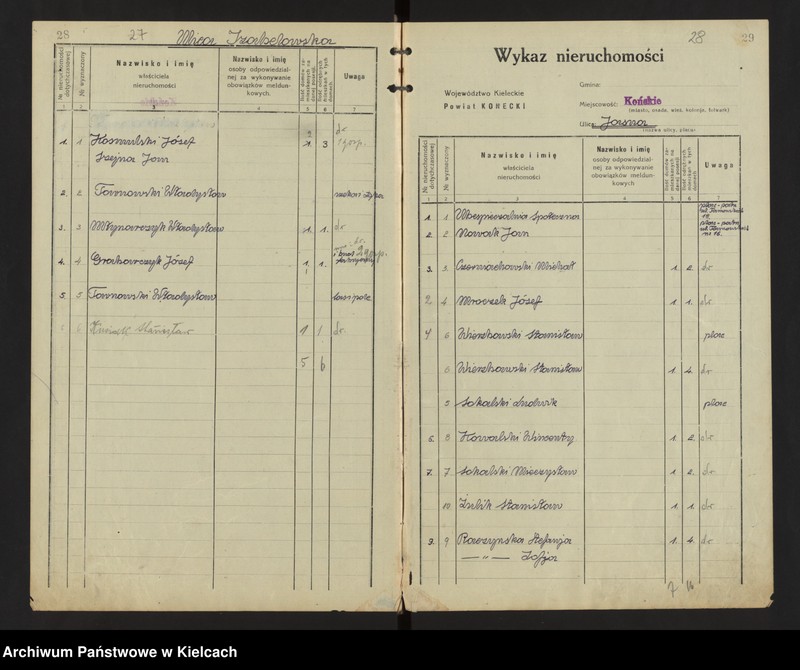 28
27
Ulica Izabelowska
Nr nieruchomości dotychczasowej
Nr wyznaczony
Nazwisko i imię
właściciela
nieruchomości
Nazwisko i imię
osoby odpowiedzial-
nej za wykonywanie
obowiązków meldun-
kowych.
Uwaga
1 2 3 4 5 6 7
1. 1 Kosmulski Józef 1. 3 dr
Szejna Jan
2. 2 Tarnowski Władysław
3. 3 Młynarczyk Władysław 1. 1. dr
4. 4. Grabarczyk Józef 1. 1.
5. 5 Tarnowski Władysław
Stanisław 1 1 dr.
5 6
28
29
Wykaz nieruchomości
Województwo Kieleckie
Powiat KONECKI
Gmina:
Miejscowość: Końskie
(miasto, osada, wieś, kolonja, folwark)
Ulica: Jasna
(nazwa ulicy, placu)
Nr nieruchomości dotychczasowej
Nr wyznaczony
Nazwisko i imię
właściciela
nieruchomości
Nazwisko i imię
osoby odpowiedzial-
nej za wykonywanie
obowiązków meldun-
kowych
Uwaga
1 2 3 4 5 6 7
1. 1 Ubezpieczalnia Społeczna
2. 2 Nowak Jan
3. 3. Czarniachowski Michał 1. 2. dr
2 4 Mroczek Józef 1 1. dr
4 6 Wierzbowski Stanisław plac
6 Wierzbowski Stanisław 1. 4. dr
5 Sokalski Ludwik plac
6. 8 Kowalski Wincenty 1. 2. dr
7. 7. Sokalski Mieczysław 1 2. dr
10 Żulik Stanisław 1. 1. dr
9. 9 Raczyńska Stefanja 1. 4. dr
— „ — Zofja
7 16
Archiwum Państwowe w Kielcach